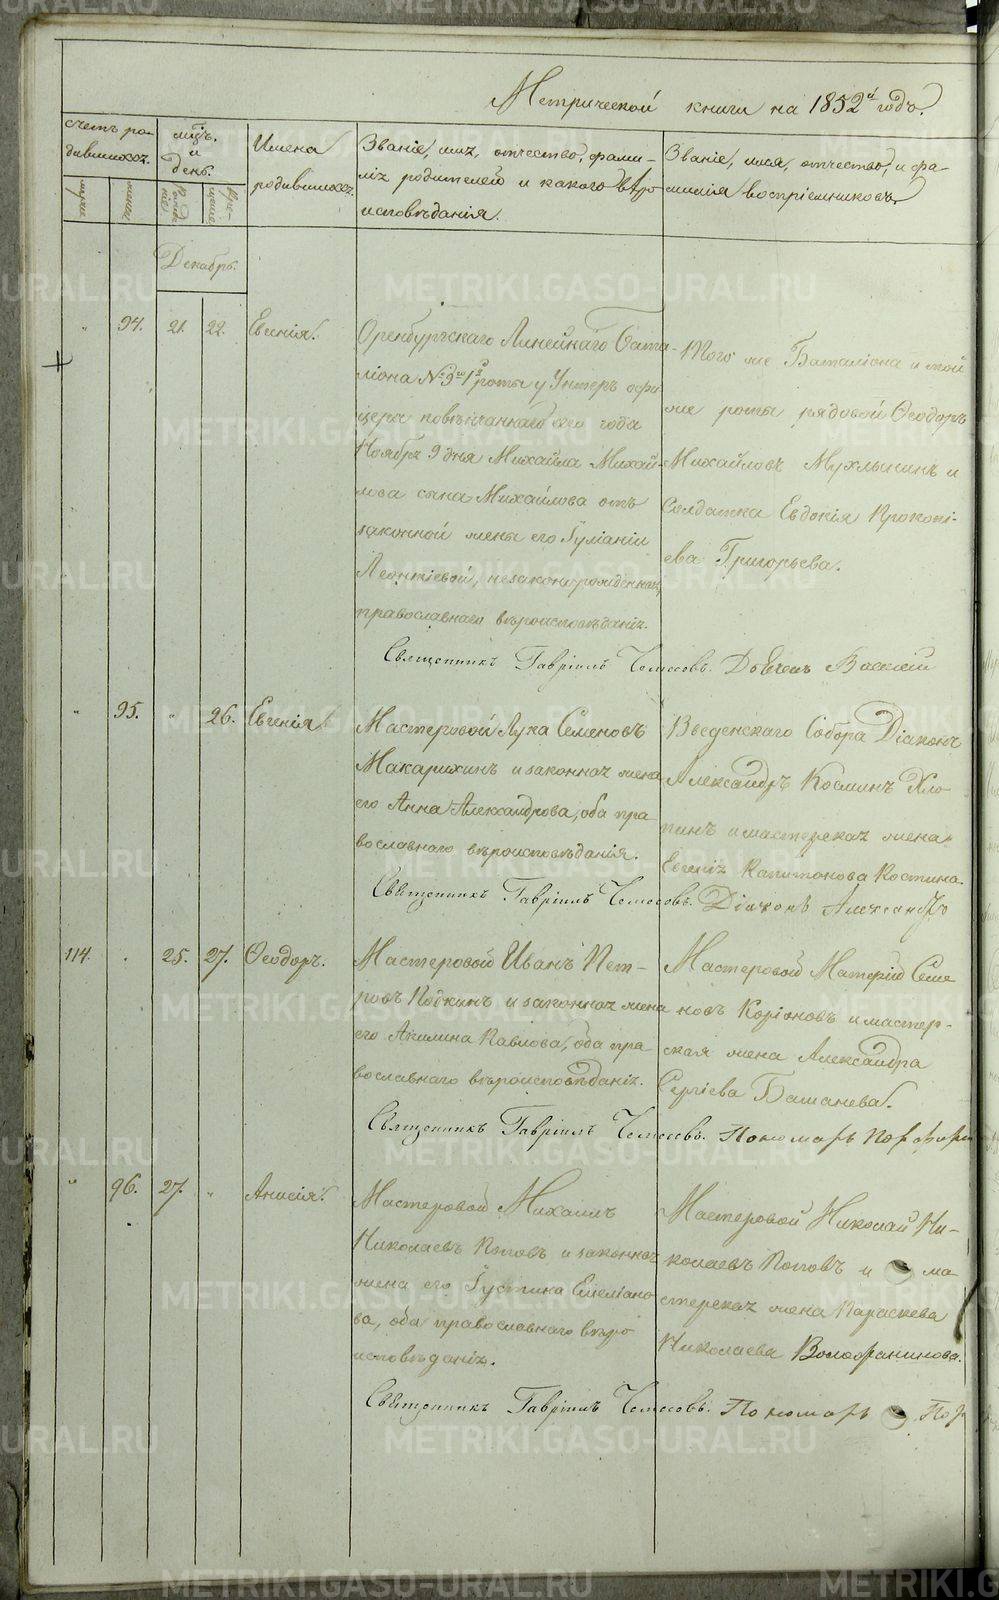 Метрической книги на 1852й годъ.
счетъ ро-
дившихся.
мцъ.
и
день.
Имена
родившихся.
Званіе, имя, отчество, фами-
лія родителей и какого вѣро
исповѣданія.
Званіе, имя, отчество, и фа-
милія воспріемниковъ.
Декабрь.
94. 21. 22. Евгенія.
Оренбургскаго Линейнаго Бата-
ліона №3го 1й роты у Унтеръ офи
цера повѣнчаннаго сего года
Ноября 9 дня Михайла Михай-
лова сына Михайлова отъ
законной жены его Гуліаніи
Леонтіевой, незаконнорожденная,
православнаго вѣроисповѣданія.
Того же Баталіона и той
же роты рядовой Ѳеодоръ
Михайловъ Мухлынинъ и
Солдатка Евдокія Прокопі-
ева Григорьева.
Священникъ Гавріилъ
" 95. " 26. Евгенія
Мастеровой Лука Семеновъ
Макарихинъ и законная жена
его Анна Александрова, оба пра-
вославнаго вѣроисповѣданія.
Введенскаго Собора Діаконъ
Александръ Косминъ Хло-
пинъ и мастерская жена
Евгенія Капитонова Костина.
Священникъ Гавріилъ Діаконъ Александръ
114. 25. 27. Ѳеодоръ.
Мастеровой Иванъ Пет-
ровъ Подкинъ и законная жена
его Акилина Павлова, оба пра-
вославнаго вѣроисповѣданія.
Мастеровой Матѳій Семе
новъ Коріоновъ и мастер-
ская жена Александра
Сергіева Баманева.
Священникъ Гавріилъ Пономарь Порфири
" 96. 27. " Анисія.
Мастеровой Михаилъ
Николаевъ Поповъ и законная
жена его Густина Емеліано
ва, оба православнаго вѣро
исповѣданія.
Мастеровой Николай Ни-
колаевъ Поповъ и ма-
стерская жена Параскева
Николаева
Священникъ Гавріилъ Пономарь
METRIKI.GASO-URAL.RU